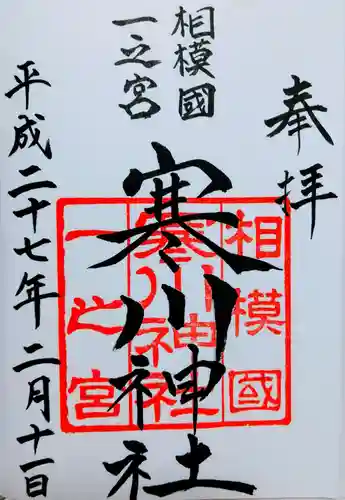 奉拝
相模國
一之宮
寒川神社
平成二十七年二月十一日
相模國
寒川神社
一之宮